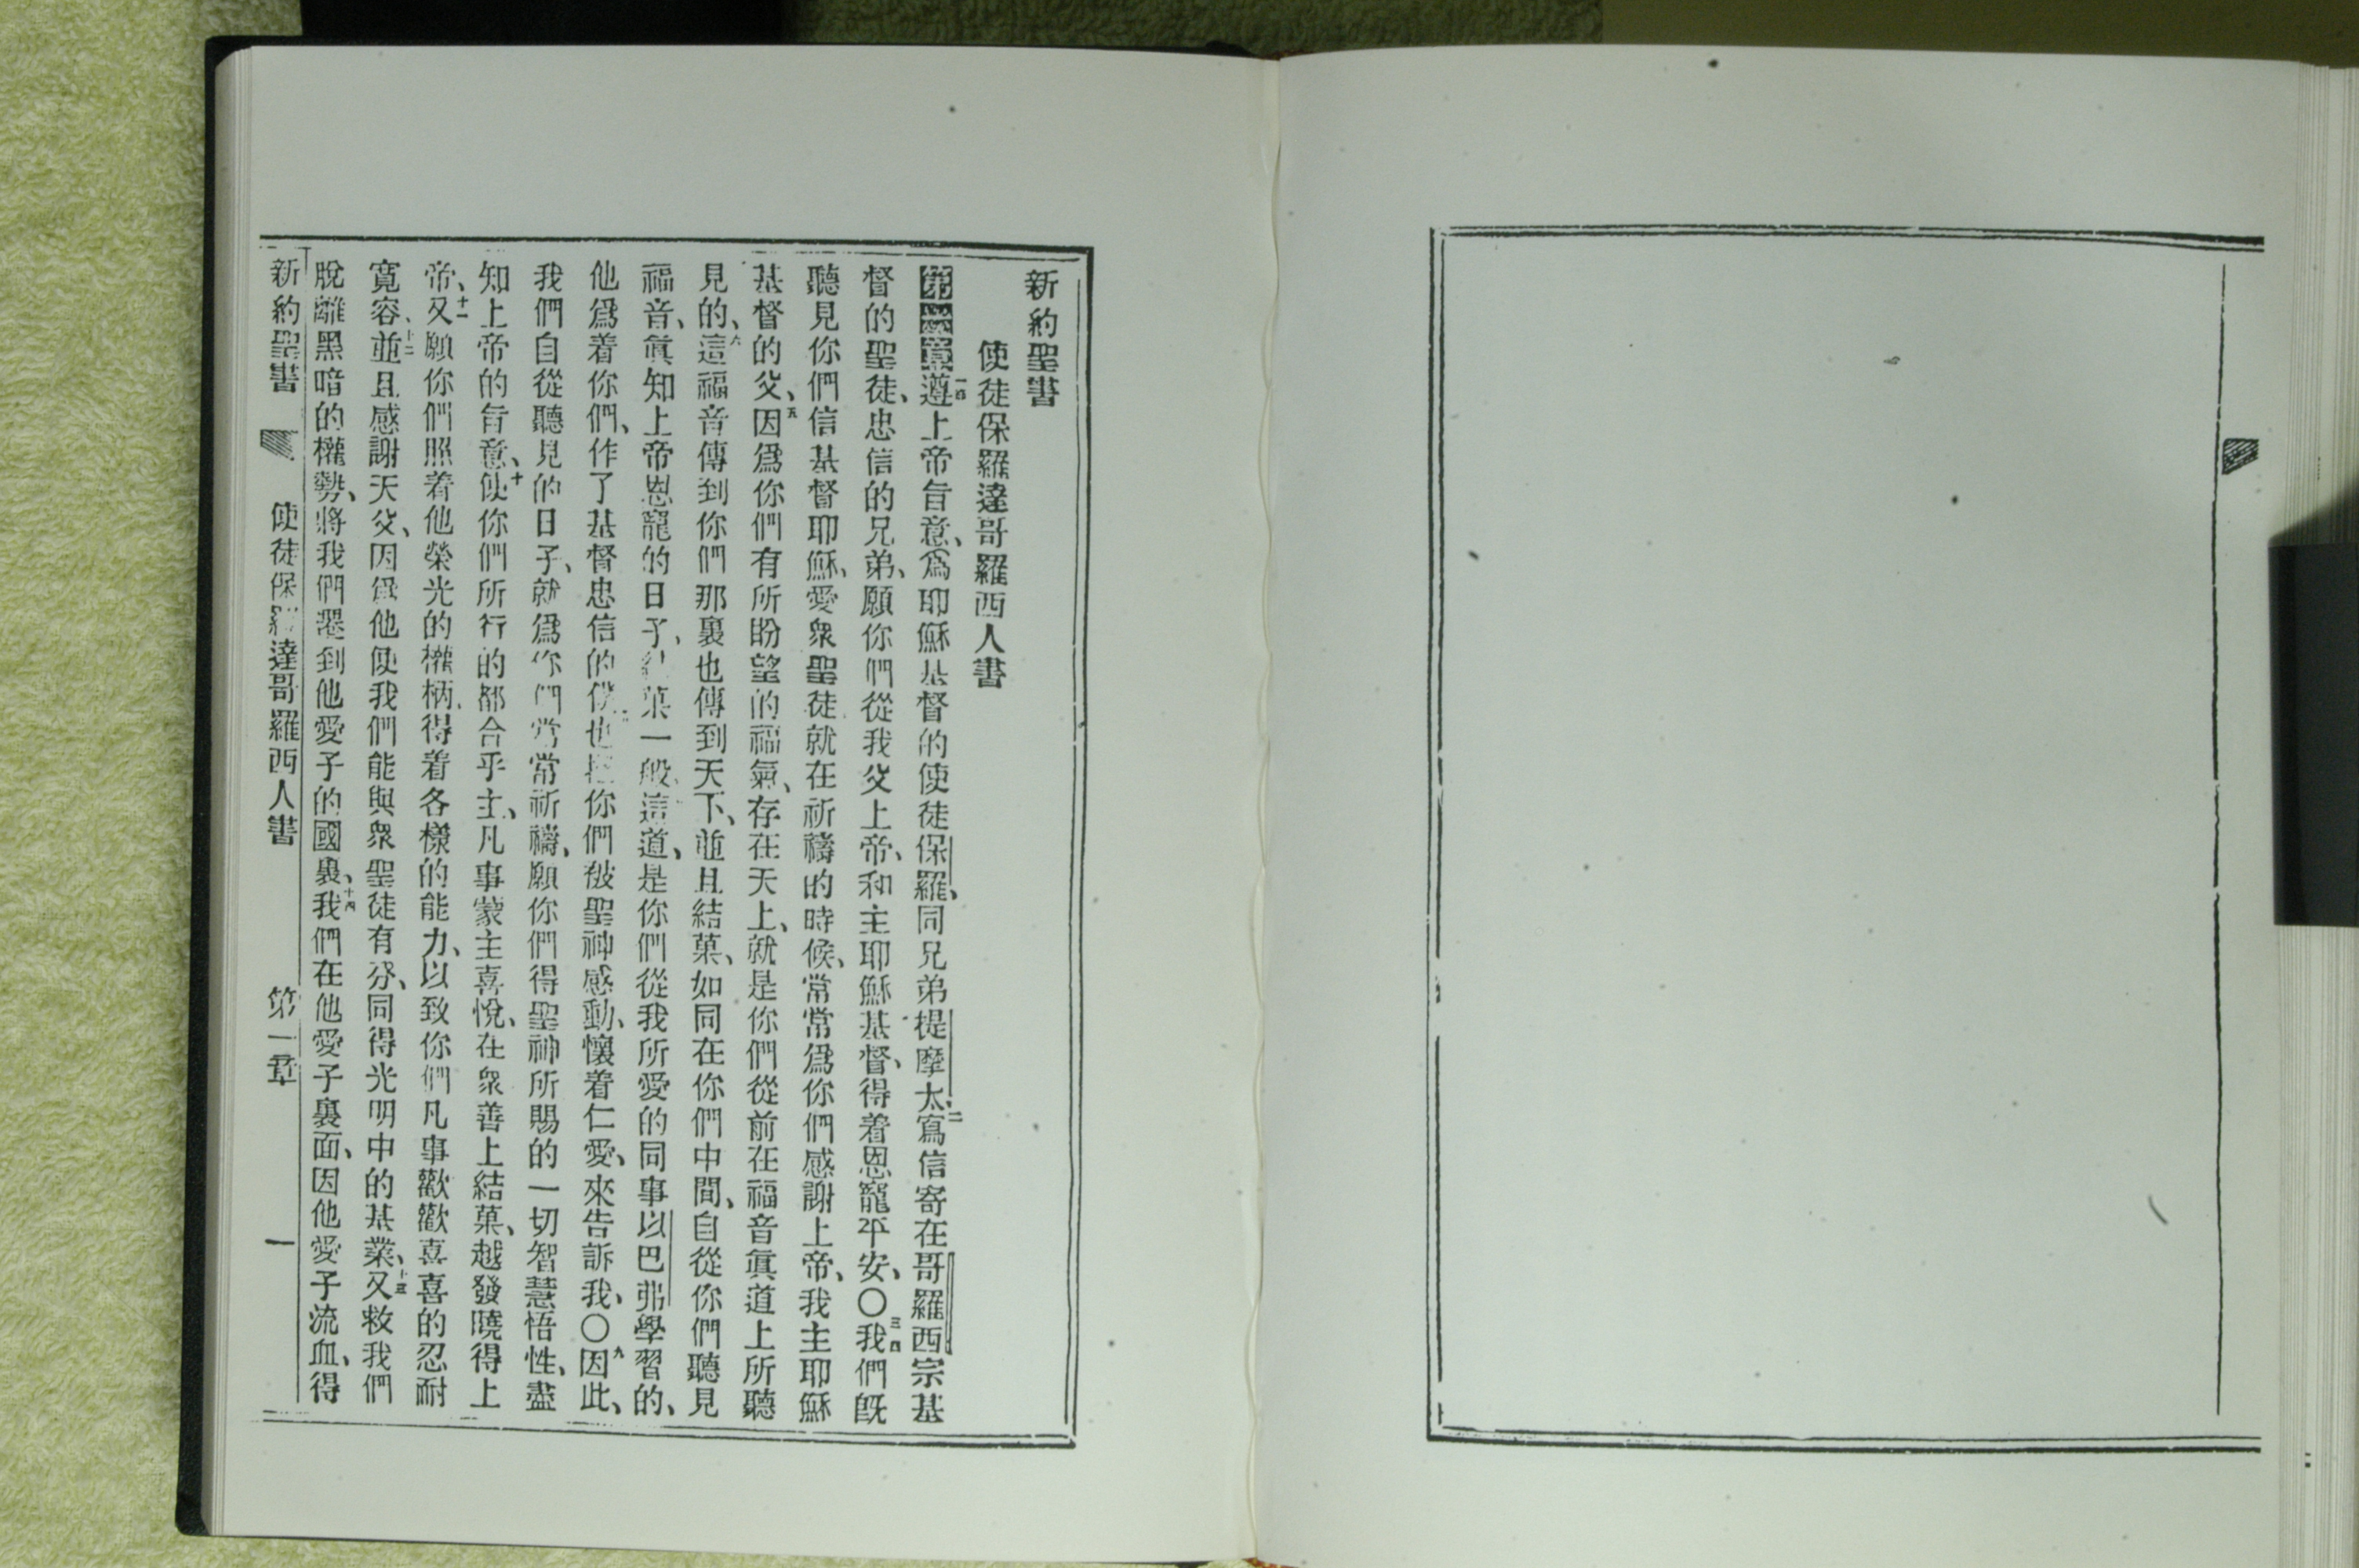 新約聖書
使徒保羅達哥羅西人書
第一章一遵上帝旨意、爲耶穌基督的使徒保羅、同兄弟提摩太、二寫信寄在哥羅西宗基
督的聖徒、忠信的兄弟、願你們從我父上帝、和主耶穌基督、得着恩寵平安、〇三我四們既
聽見你們信基督耶穌、愛衆聖徒、就在祈禱的時候、常常爲你們感謝上帝、我主耶穌
基督的父、五因爲你們有所盼望的福氣、存在天上、就是你們從前在福音眞道上所聽
見的、六這福音傳到你們那裏也傳到天下、並且結菓、如同在你們中間、自從你們聽見
福音、眞知上帝恩寵的日子、結菓一般、這道、是你們從我所愛的同事以巴弗學習的、
他爲着你們、作了基督忠信的僕也你們被聖神感動、懷着仁愛、來告訴我、〇九因此、
我們自從聽見的日子、就爲你們常常祈禱、願你們得聖神所賜的一切智慧悟性、盡
知上帝的旨意、十使你們所行的都合乎主、凡事蒙主喜悅、在衆善上結菓、越發曉得上
帝、十一又願你們照着他榮光的權柄、得着各樣的能力、以致你們凡事歡歡喜喜的忍耐
寬容、十二並且感謝天父、因爲他使我們能與衆聖徒有分、同得光明中的基業、十三又救我們
脫離黑暗的權勢、將我們遷到他愛子的國裏、十四我們在他愛子裏面、因他愛子流血、得
新約聖書 使徒保羅達哥羅西人書 第一章 一